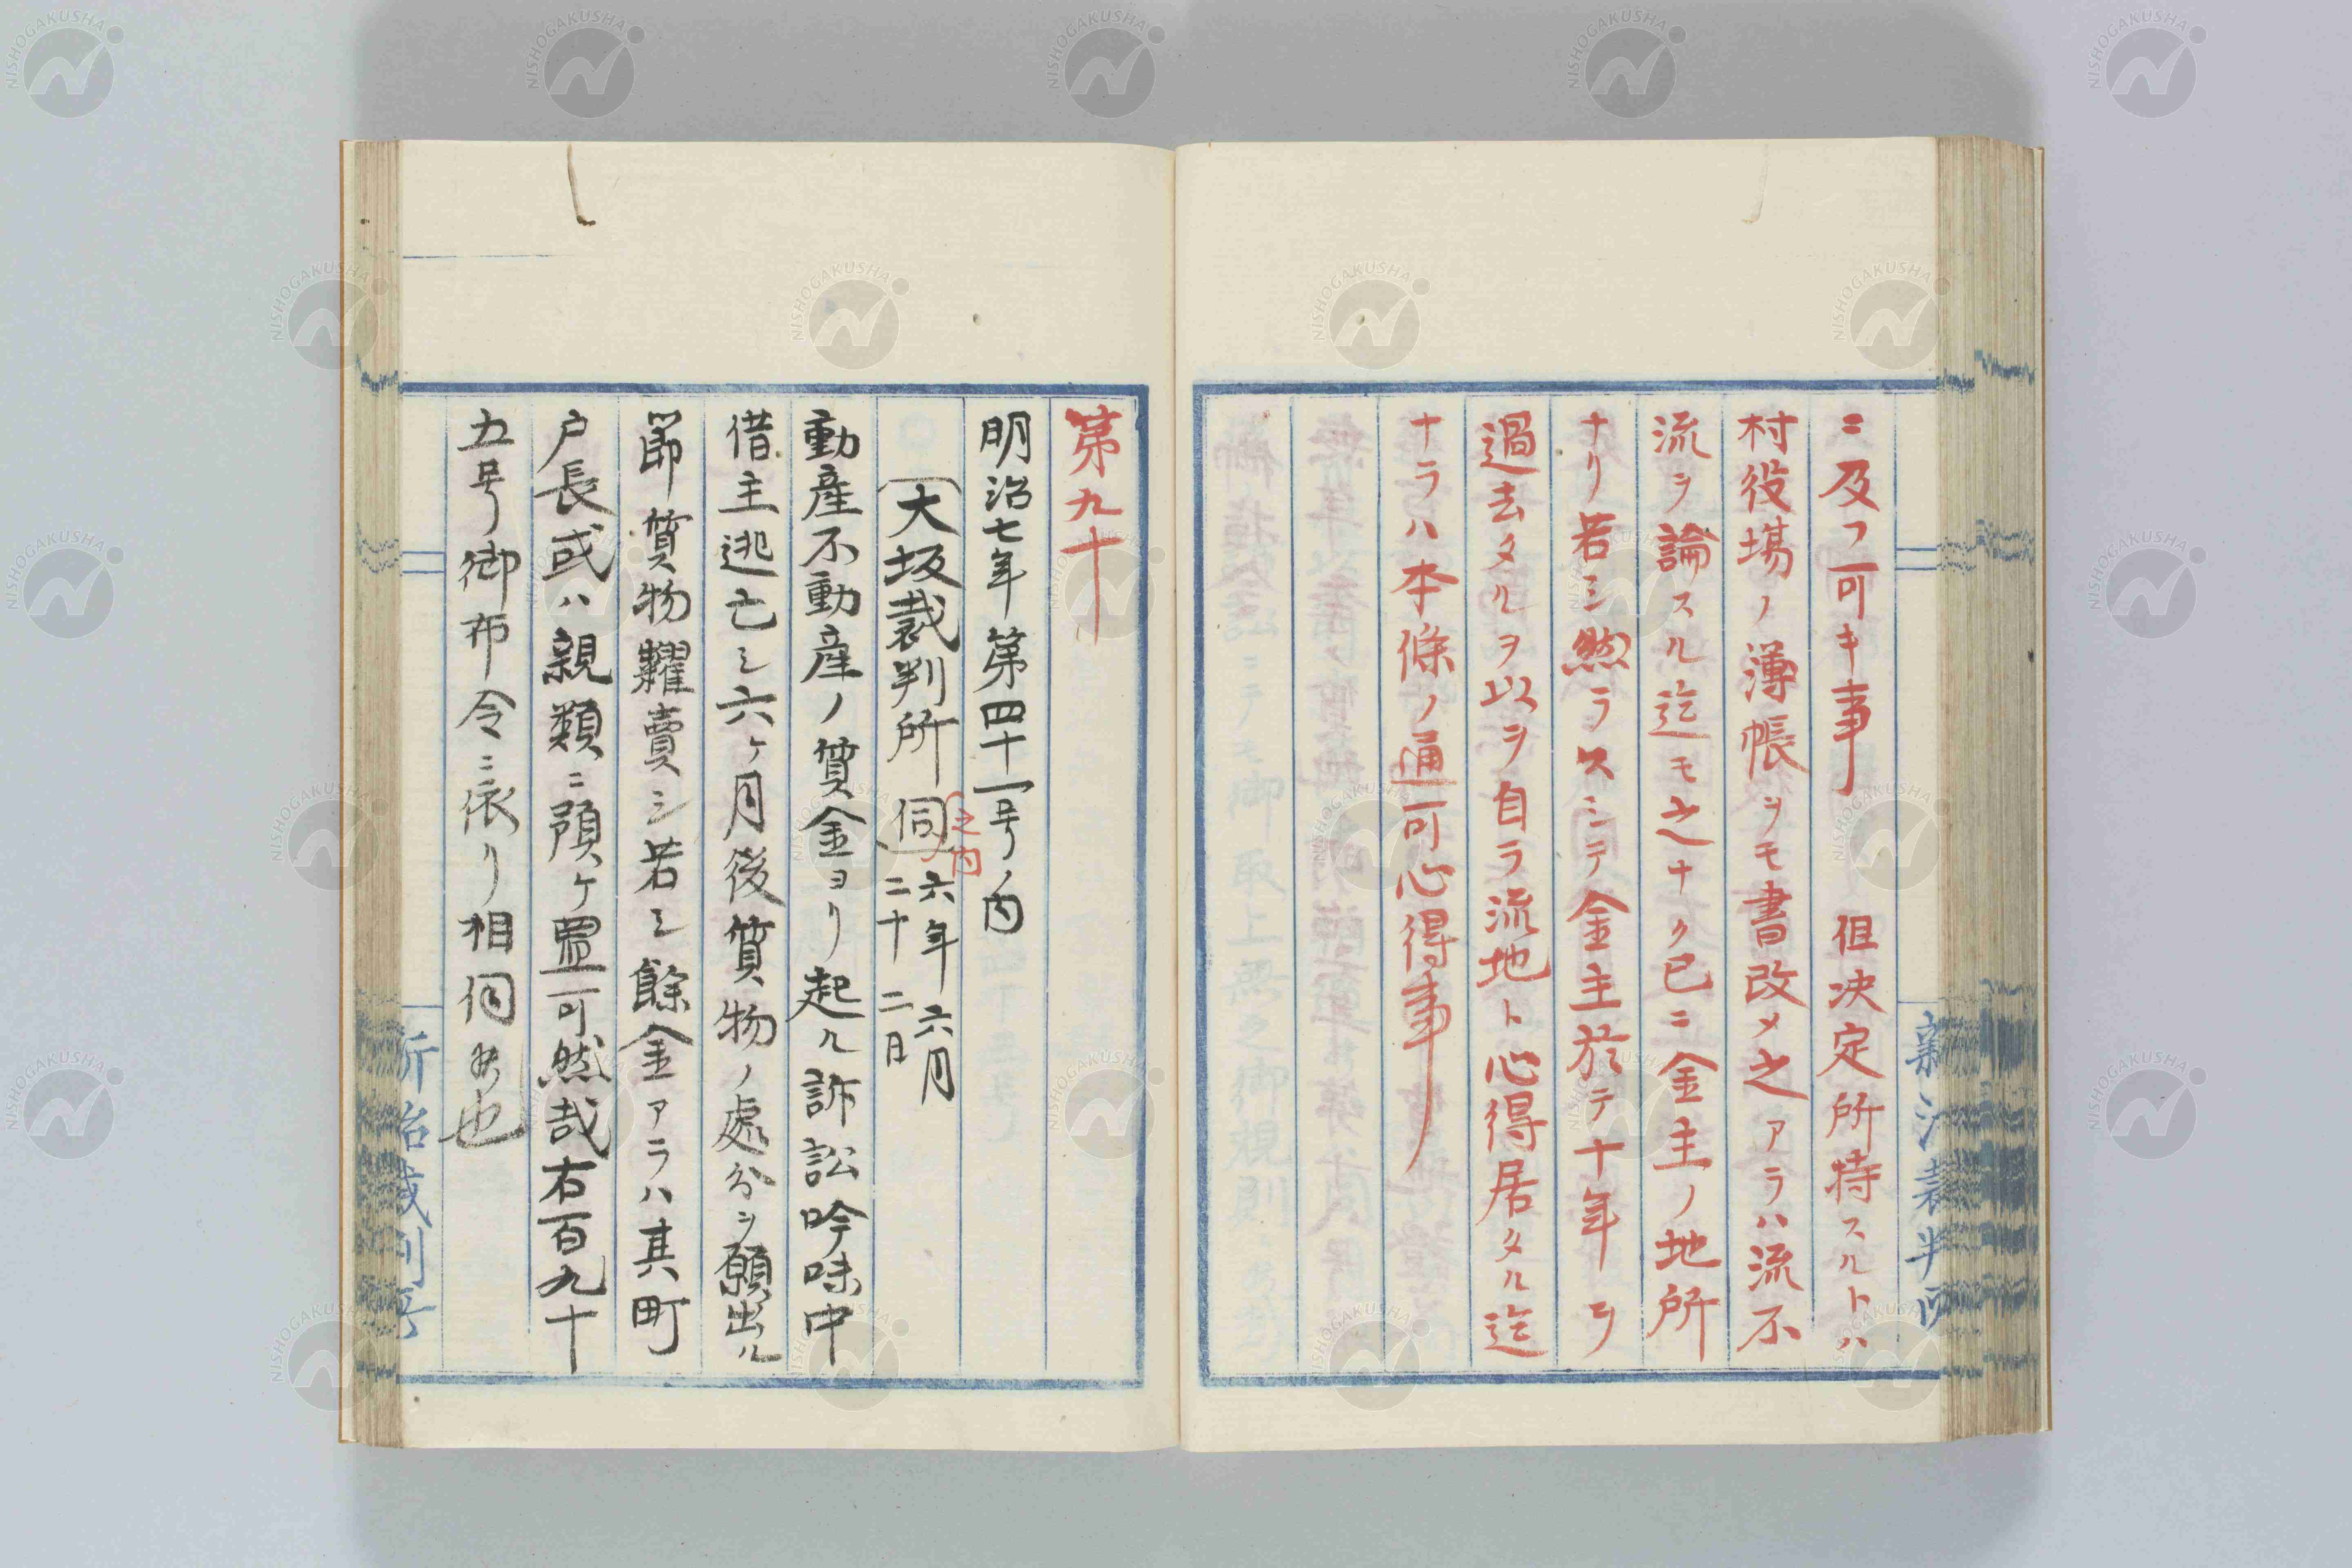 ニ及フ可キ事　但决定所持スルトハ
村役場ノ簿帳ヲモ書改メ之アラハ流不
流ヲ論スル迄モ之ナク已ニ金主ノ地所
ナリ若シ然ラスシテ金主於テ十年ヲ
過去タルヲ以ヲ自ラ流地ト心得居タル迄
ナラハ本條ノ通可心得事
第九十
明治七年第四十一号ノ内
大坂裁判所伺之内六年六月
二十二日
動產不動產ノ質金ヨリ起ル訴訟吟味中
借主逃亡シ六ケ月後質物ノ處分ヲ願出ル
節質物糶賣シ若シ餘金アラハ其町
戸長或ハ親類ニ預ケ置可然哉右百九十
五号御布令ニ依リ相伺候也
新治裁判所
NISHOGAKUSHA